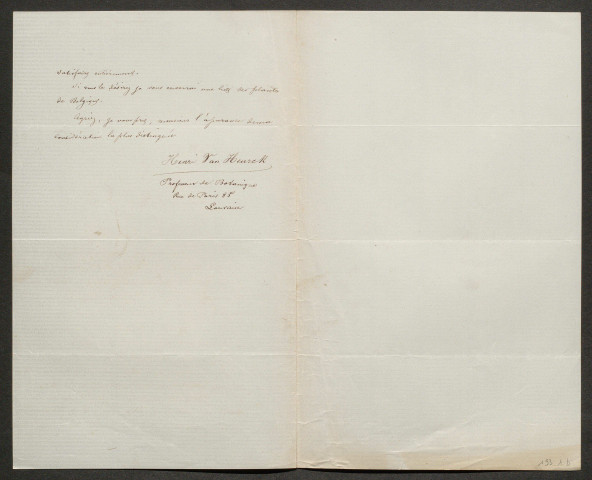 satisfaire entièrement.
Si vous le désirez je vous enverrai une liste des
de Belgique.
Agréez, je vous prie, monsieur l'assurance de ma
considération la plus distinguée
Henri Van Heurck
Professeur de Botanique
Rue de Paris
Louvain